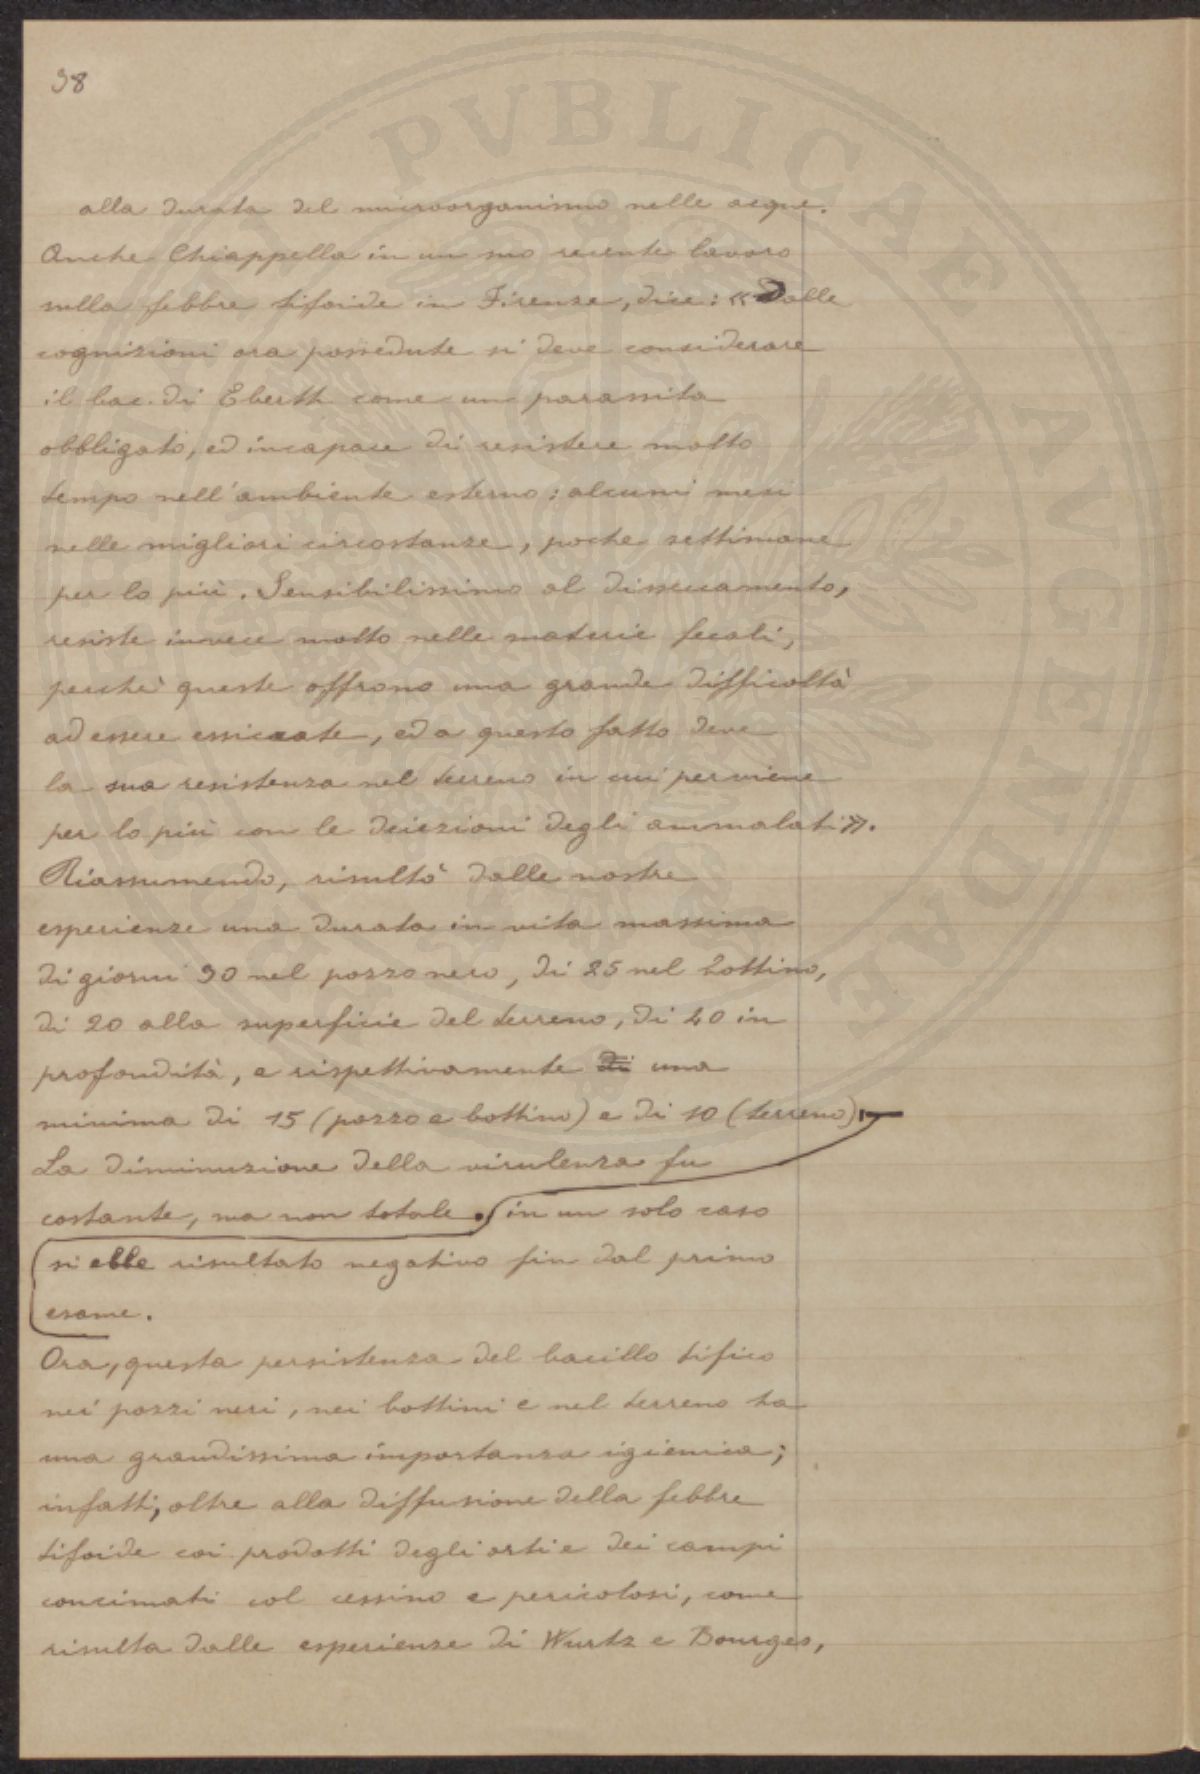 38
alla durata del microorganismo nelle acque.
Anche Chiappella in un suo recente lavoro
sulla febbre tifoide in Firenze, dice: « Dalle
cognizioni ora possedute si deve considerare
il bac. di Eberth come un parassita
obbligato, ed incapace di resistere molto
tempo nell'ambiente esterno: alcuni mesi
nelle migliori circostanze, poche settimane
per lo più. Sensibilissimo al disseccamento,
resiste invece molto nelle materie fecali,
perchè queste offrono una grande difficoltà
ad essere essiccate, ed a questo fatto deve
la sua resistenza nel terreno in cui perviene
per lo più con le deiezioni degli ammalati».
Riassumendo, risultò dalle nostre
esperienze una durata in vita massima
di giorni 30 nel pozzo nero, di 25 nel bottino,
di 20 alla superficie del terreno, di 40 in
profondità, e rispettivamente di una
minima di 15 (pozzo e bottino) e di 10 (terreno);
La diminuzione della virulenza fu
costante, ma non totale. in un solo caso
si ebbe risultato negativo fin dal primo
esame.
Ora, questa persistenza del bacillo tifico
nei pozzi neri, nei bottini e nel terreno ha
una grandissima importanza igienica;
infatti, oltre alla diffusione della febbre
tifoide coi prodotti degli orti e dei campi
concimati col cessino e pericolosi, come
risulta dalle esperienze di Wurtz e Bourges,
PVBLICAE AVGENDAE